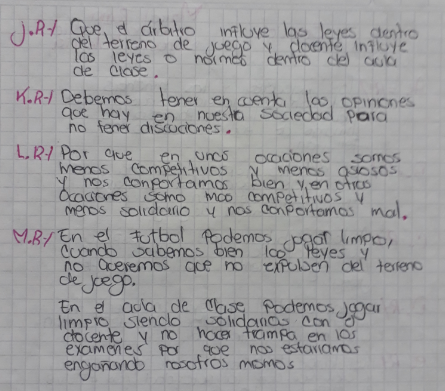 J.R-/ Que el árbitro influye las leyes dentro
del terreno de juego y docente influye
las leyes o normas dentro del aula
de clase.
K.R-/ Debemos tener en cuenta las opiniones
que hay en nuesta sociedad para
no tener discuciones.
L.R-/ Por que en unas ocaciones somos
menos competitivos y menos
y nos comportamos bien y en otras
ocaciones somo mas competitivos y
menos solidario y nos comportamos mal.
M.R-/ En el futbol podemos jogar limpio,
cuando sabemos bien las leyes y
no queremos que no expulsen del terreno
de juego.
En el aula de clase podemos jogar
limpio siendo solidarios con el
docente y no hacer trampa en los
examenes por que nos estariamos
engañando nosotros mismos